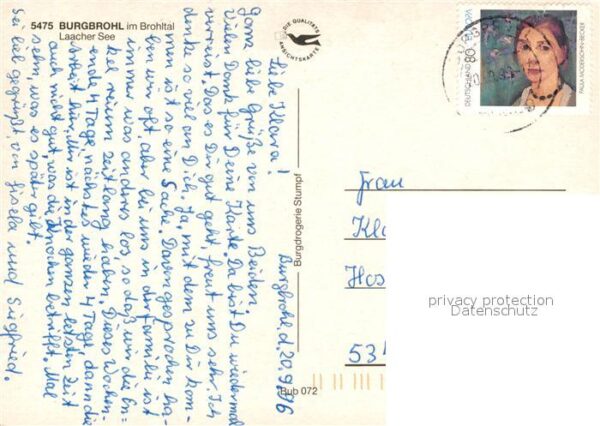 5475 BURGBROHL im Brohltal
Laacher See
DIE QUALITÄTS
ANSICHTSKARTE
DEUTSCHLAND 80 EUROPA
PAULA MODERSOHN-BECKER
Burgbrohl d. 20.9.96
Liebe Klara!
Ganz liebe Grüße von uns Beiden.
Vielen Dank für Deine Karte. Da bist Du wiedermal
verreist. Das es Dir gut geht, freut uns sehr. Ich
denke so viel an Dich. Ja, mit dem zu Dir kom-
men ist so eine Sache. Davon gesprochen ha-
ben wir oft aber bei uns in der Familie ist
immer was anderes los, so daß wir die En-
kel rium zeitlang haben. Dieses Wochen-
ende 4 Tage nächstes wieder 4 Tage, dann die
Arbeit hier. Mir ist in der ganzen letzten Zeit
auch nicht gut, was die Knochen betrifft. Mal
sehn, was es später gibt.
Sei lieb gegrüßt von Gisela und Siegfried.
Burgdrogerie Stumpf
Bub 072
Frau
Kla
Hos
534
privacy protection
Datenschutz